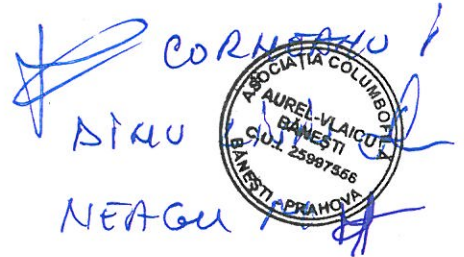 CORNEANU I
DINU
NEAGU
ASOCIAȚIA COLUMBOFILĂ
AUREL-VLAICU
BĂNEȘTI
C.U.I. 25997566
BĂNEȘTI - PRAHOVA